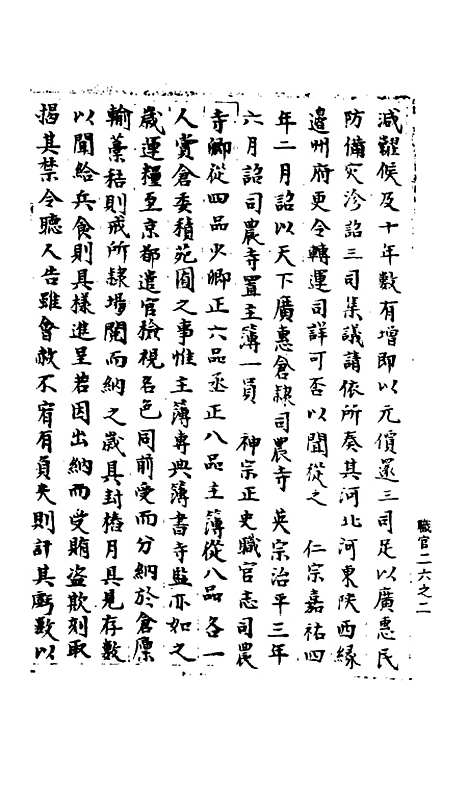 減糶候及十年數有增即以元價還三司足以廣惠民
防備災沴詔三司集議請依所奏其河北河東陝西緣
邊州府更令轉運司詳可否以聞從之　仁宗嘉祐四
年二月詔以天下廣惠倉隸司農寺　英宗治平三年
六月詔司農寺置主簿一員　神宗正史職官志司農
寺卿從四品少卿正六品丞正八品主簿從八品各一
人賞倉委積苑囿之事惟主簿專典簿書寺監亦如之
歲運糧至京都遣官檢視名色同前受而分納於倉廪
輸藁秸則戒所隸場閱而納之歲具封樁月具見存數
以聞給兵食則具樣進呈若因出納而受賄盜欺刻取
揭其禁令聽人告雖會赦不宥有負失則計其虧數以
職官二六之二